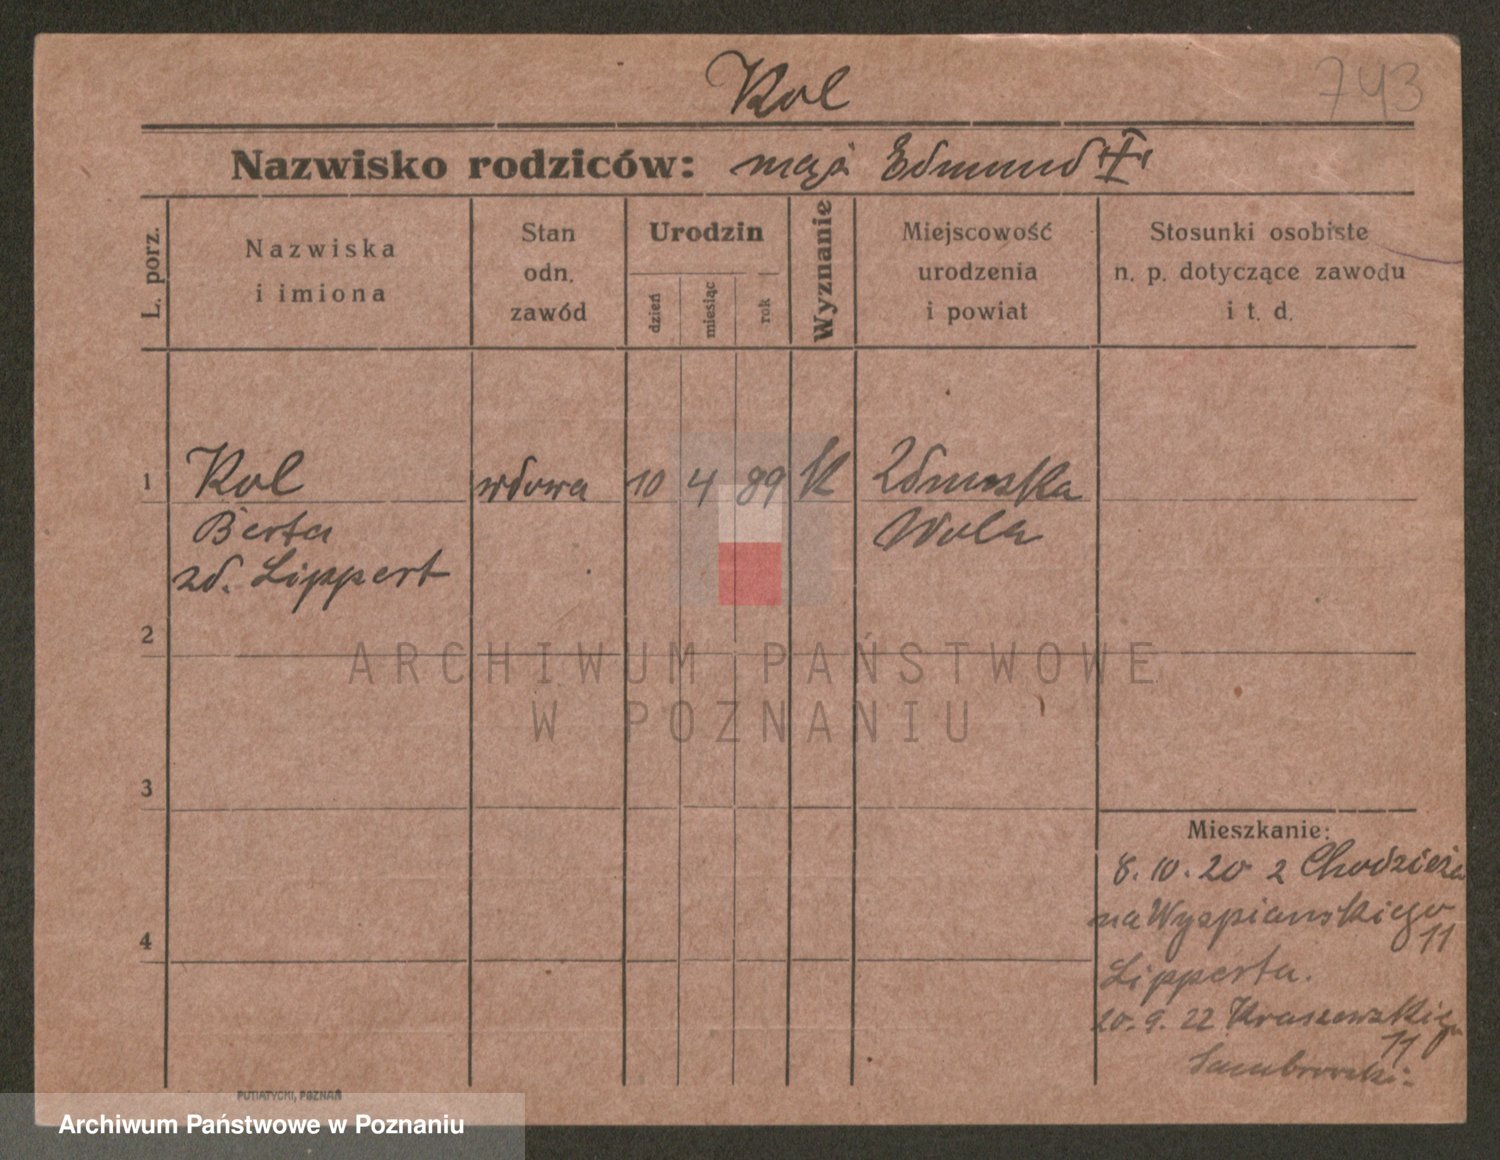 Kol
743
Nazwisko rodziców: mąż Edmund
L. porz.
Nazwiska
i imiona
Stan
odn.
zawód
Urodzin
dzień
miesiąc
rok
Wyznanie
Miejscowość
urodzenia
i powiat
Stosunki osobiste
n. p. dotyczące zawodu
i t. d.
1 Kol wdowa 10 4 89 K Zduńska
Berta Wola
zd. Lippert
2
3
4
Mieszkanie:
8.10.20 z Chodzieża
na Wyspianskiego
11
Lipperta.
20.9.22 Kraszewskiego
11
ARCHIWUM PAŃSTWOWE
W POZNANIU
PUTIATYCKI, POZNAŃ
Archiwum Państwowe w Poznaniu